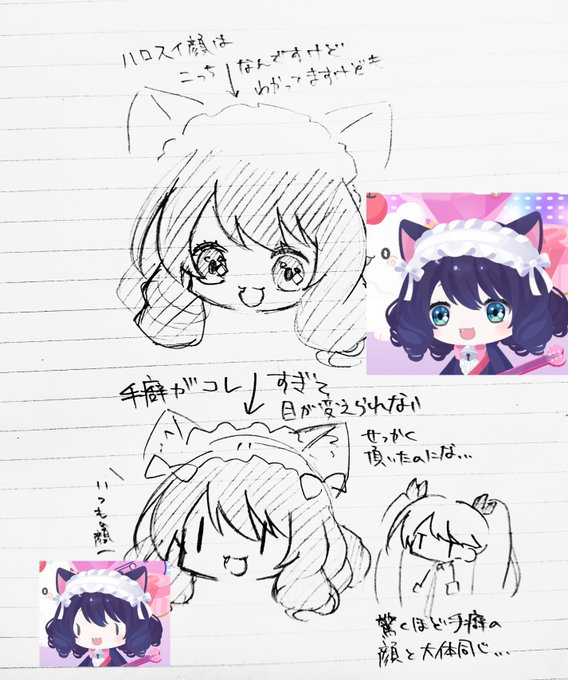 ハロスイ顔は
こっち なんですけど
わかってますけども
手癖がコレ すぎて
目が変えられない
せっかく
頂いたのにな...
いつも顔
驚くほど手癖の
顔と大体同じ...